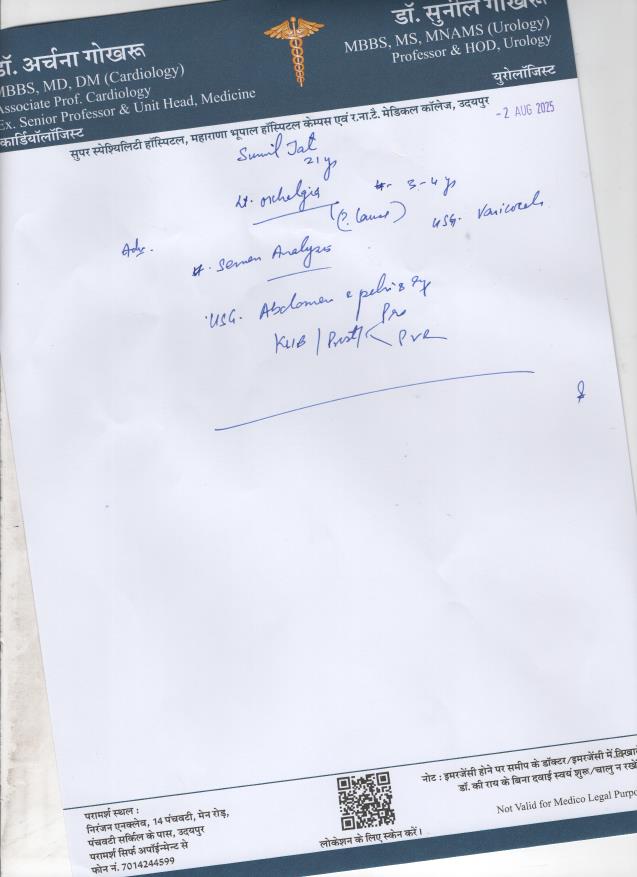 डॉ. अर्चना गोखरू
MBBS, MD, DM (Cardiology)
Associate Prof. Cardiology
Ex. Senior Professor & Unit Head, Medicine
कार्डियॉलॉजिस्ट
डॉ. सुनील गोखरू
MBBS, MS, MNAMS (Urology)
Professor & HOD, Urology
युरोलॉजिस्ट
सुपर स्पेश्यिलिटी हॉस्पिटल, महाराणा भूपाल हॉस्पिटल कैम्पस एवं र.ना.टै. मेडिकल कॉलेज, उदयपुर
- 2 AUG 2025
Sunil Jat
21 ys
Lt. orchelgia 3-4 ys
(?. Cause) USG. Varicocele
Adv.
Semen Analysis
USG. Abdomen & pelvis
Pre
KUB / Prost / < PVR
परामर्श स्थल :
निरंजन एनक्लेव, 14 पंचवटी, मेन रोड़,
पंचवटी सर्किल के पास, उदयपुर
परामर्श सिर्फ अपॉईन्मेन्ट से
फोन नं. 7014244599
लोकेशन के लिए स्केन करें।
नोट : इमरजेंसी होने पर समीप के डॉक्टर/इमरजेंसी में दिखा
डॉ. की राय के बिना दवाई स्वयं शुरू/चालु न रखें
Not Valid for Medico Legal Purpo